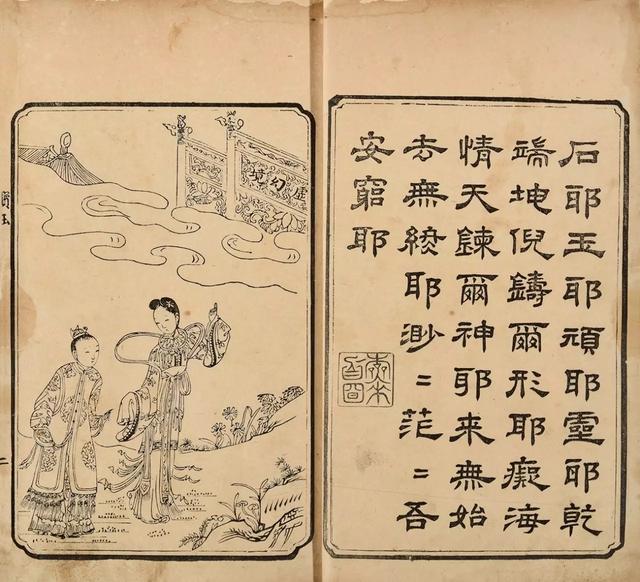 石耶玉耶頑耶靈耶乾
端坤倪鑄爾形耶癡海
情天鍊爾神耶來無始
去無終耶渺〻茫〻吾
安窮耶
虛幻境
玉
二